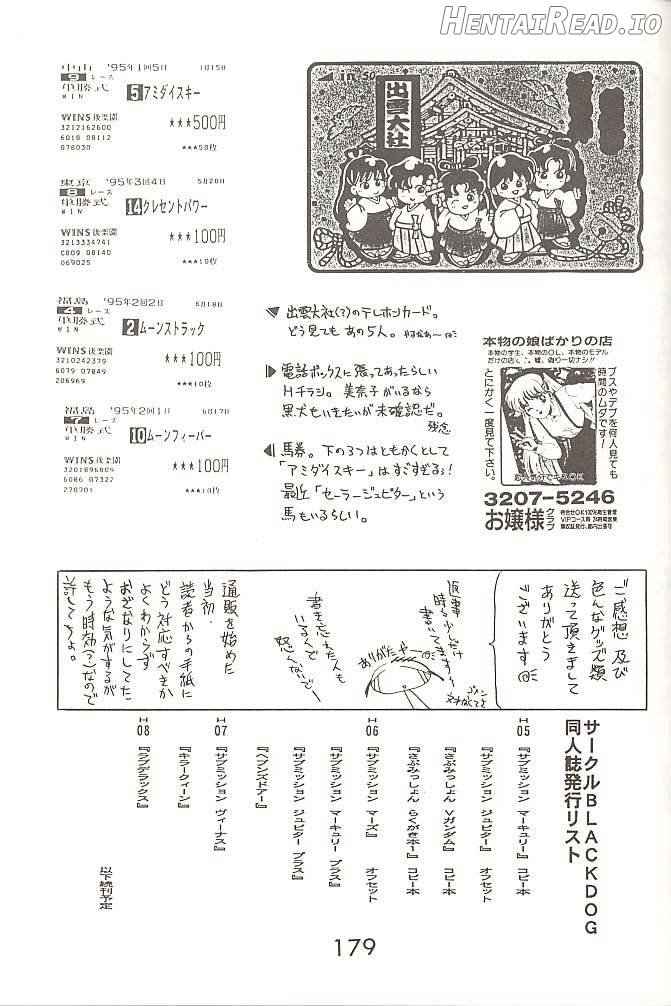 HENTAIREAD.IO
中山 '95年1回5日 1月15日
9 レース
単勝式 WIN 5 アミダイスキー
WINS後楽園 ★★★500円
3212162600
6018 08112
078030 ★★★50枚
東京 '95年3回4日 5月20日
8 レース
単勝式 WIN 14 クレセントパワー
WINS後楽園 ★★★100円
3213334741
C809 08140
069025 ★★★10枚
福島 '95年2回2日 6月18日
4 レース
単勝式 WIN 2 ムーンストラック
WINS後楽園 ★★★100円
3210242379
6079 07849
206969 ★★★10枚
福島 '95年2回1日 6月17日
7 レース
単勝式 WIN 10 ムーンフィーバー
WINS後楽園 ★★★100円
3201896809
6086 07322
270701 ★★★10枚
50
出雲大社
出雲大社(?)のテレホンカード。
どう見てもあの5人。
電話ボックスに張ってあったらしい
Hチラシ。美奈子がいるなら
黒犬もいきたいが未確認だ。
残念
馬券。下の3つはともかくとして
「アミダイスキー」はすごすぎる!
最近「セーラージュピター」という
馬もいるらしい。
本物の娘ばかりの店
本物の学生、本物のOL、本物のモデル
だけの店く、嘘、偽り一切ナシ!!
ブスやデブを何人見ても
時間のムダです!
とにかく一度見て下さい。
3207-5246
お嬢様クラブ
待合せOK100%衛生管理
VIPコース有 24時間営業
領収証発行、都内出張可
ご感想 及び
色んなグッズ類
送って頂きまして
ありがとう
ございます
返事
ありがたや
書き忘れた人も
いるくて
怒んないでー
通販を始めた
当初、
読者からの手紙に
どう対応すべきか
よくわからず
おざなりにしてた
ような気がするが
もう時効(?)なので
許してちょ。
サークルBLACKDOG
同人誌発行リスト
H05
『サブミッション マーキュリー』 コピー本
『サブミッション ジュピター』 オフセット
『さぶみっしょん Vガンダム』 コピー本
『さぶみっしょん らくがきホー』 コピー本
H06
『サブミッション マーズ』 オフセット
『サブミッション マーキュリー プラス』
『サブミッション ジュピター プラス』
『ヘブンズドアー』
H07
『サブミッション ヴィーナス』
『キラークィーン』
H08
『ラブデラックス』
以下続刊予定
179